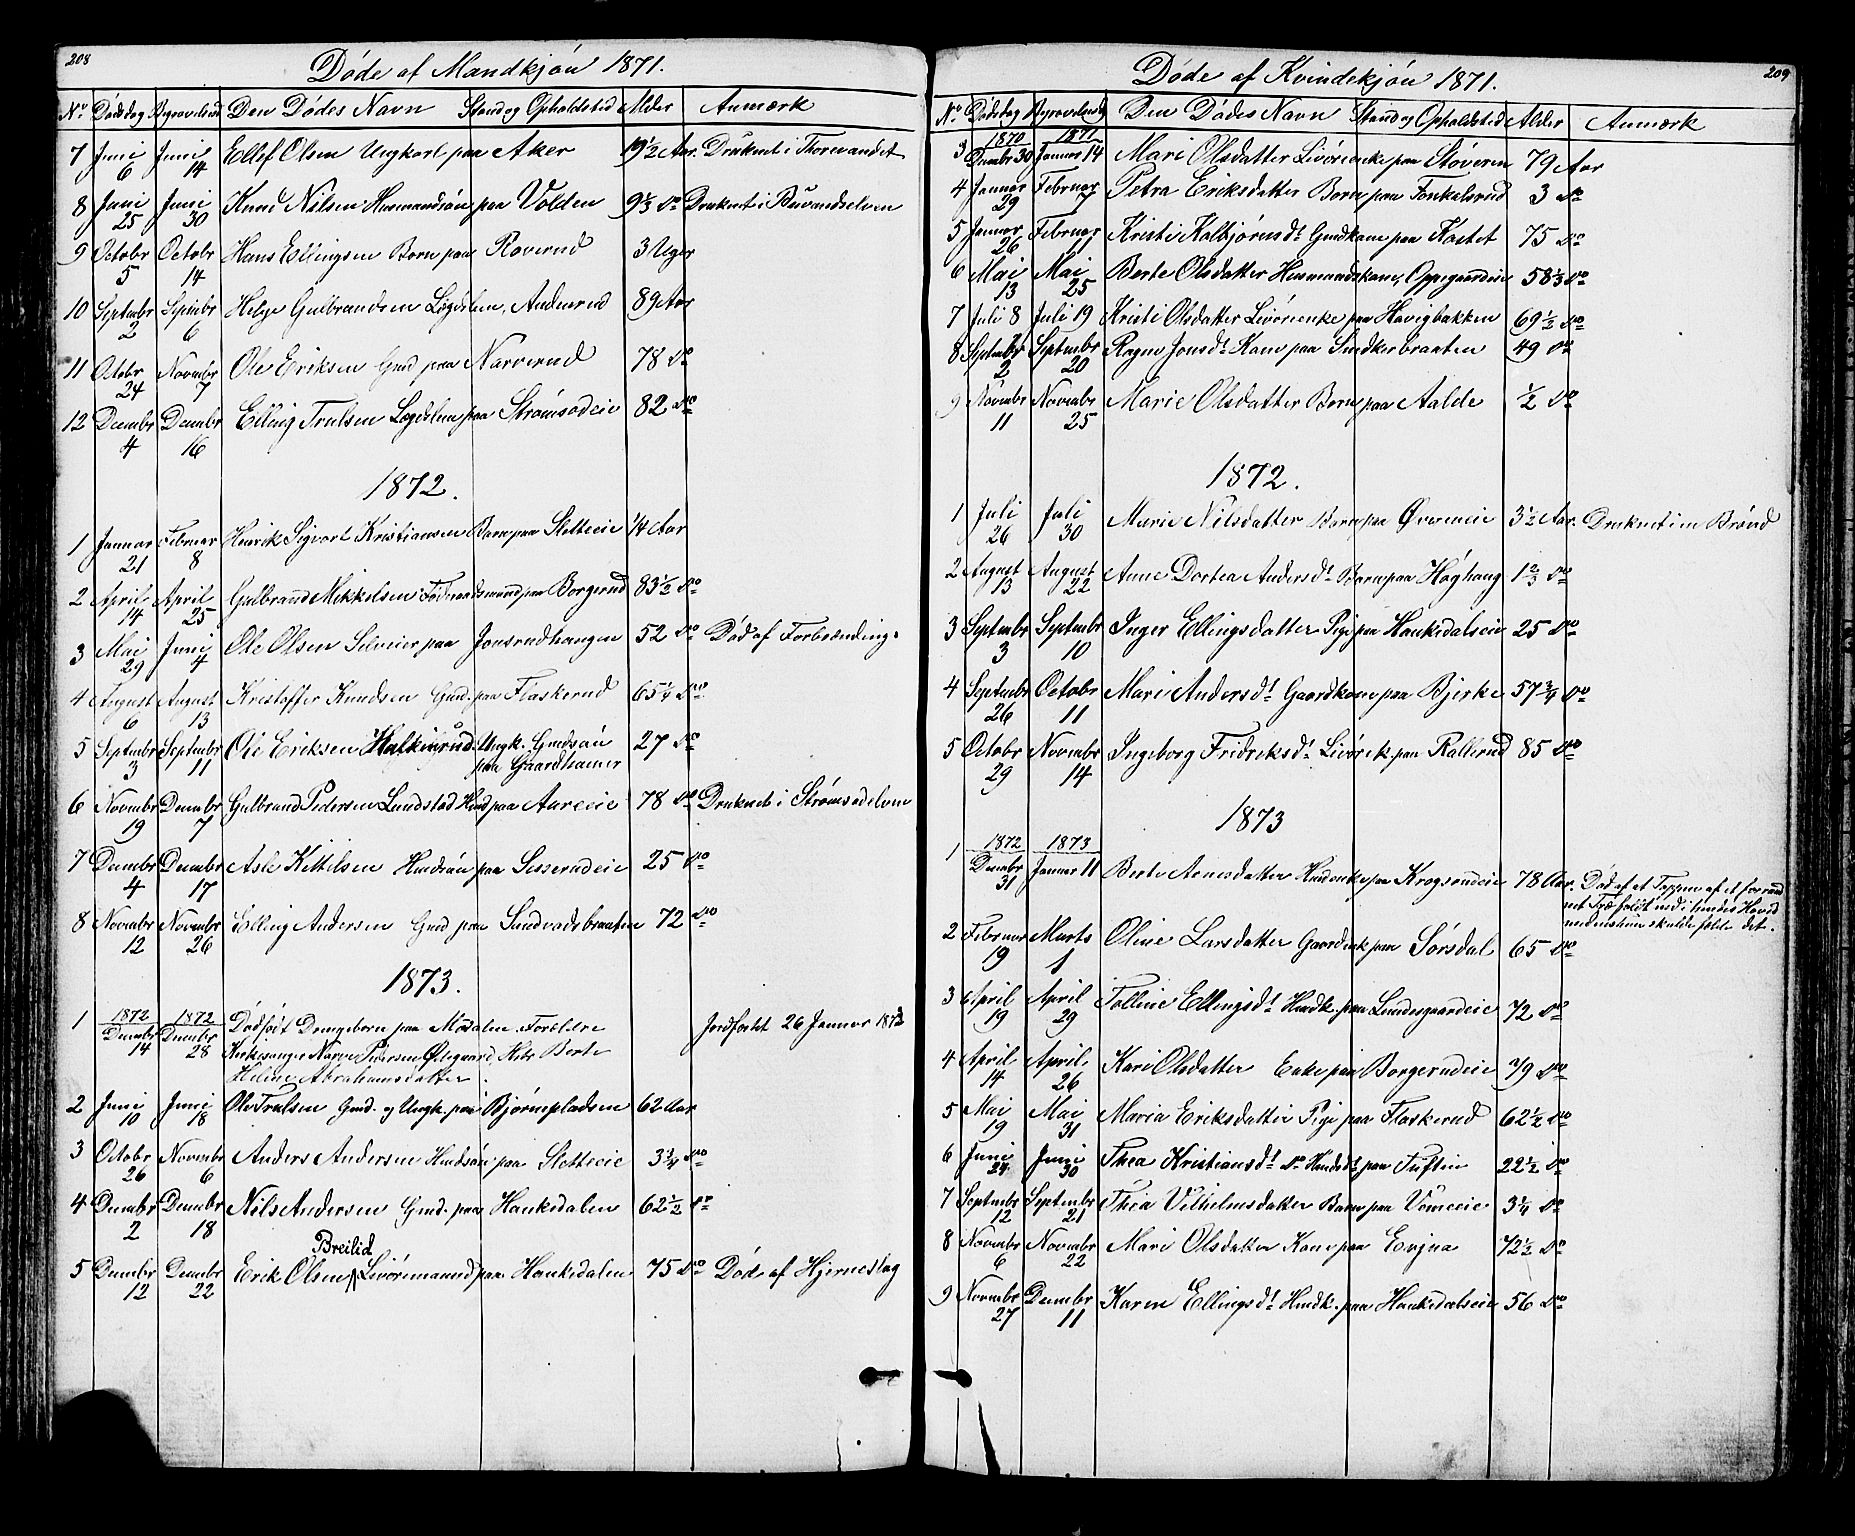 208
Døde af Mandkjøn 1871.
No Dødsdag Begravelsesd Den Dødes Navn Stand og Opholdsted Alder Anmærk
7 Juni 6 Juni 14 Ellef Olsen Ungkarl paa Aker 19½ Aar. Druknet i Thorevandet
8 Juni 25 Juni 30 Knud Nilsen Husmandssøn paa Volden 9⅓ Do Druknet i Buvandselven
9 Octobr 5 Octobr 14 Hans Ellingsen Barn paa Roverud 3 Uger
10 Septembr 2 Septembr 6 Helge Gulbrandsen Lægdslem, Anderud 89 Aar
11 Octobr 24 Novembr 7 Ole Eriksen Gmd paa Narverud 78 Do
12 Decembr 4 Decembr 16 Elling Trulsen Lægdslem paa Strømsodeie 82 Do
1872.
1 Januar 21 Februar 8 Henrik Sigvart Kristiansen Barn paa Sletteeie ¼ Aar
2 April 14 April 25 Gulbrand Mikkelsen Føderaadsmand paa Borgerud 83½ Do
3 Mai 29 Juni 4 Ole Olsen Selveier paa Jonsrudhaugen 52 Do Død af Forbrænding.
4 August 6 August 13 Kristoffer Knudsen Gmd. paa Flaskerud 65¼ Do
5 Septembr 3 Septembr 11 Ole Eriksen Halkinrud Ungk. Gmdsøn 27 Do
paa Gaardhamer
6 Novembr 19 Decembr 7 Gulbrand Pedersen Lundstad Hmd paa Aareeie 78 Do Druknet i Strømsodelven
7 Decembr 4 Decembr 17 Asle Kittilsen Hmdsøn paa Sesserudeie 25 Do
8 Novembr 12 Novembr 26 Elling Andersen Gmd paa Sandvadsbraaten 72 Do
1873.
1 1872 Decembr 14 1872 Decembr 28 Dødfødt Drengebarn paa Modalen. Forældre Jordfæstet 26 Januar 1873
Kirkesanger Narve Pedersen Ødegaard, Htr Berte
Heline Abrahamsdatter.
2 Juni 10 Juni 18 Ole Trulsen Gmd. og Ungk. paa Bjørnpladsen 62 Aar
3 Octobr 26 Novembr 6 Anders Andersen Hmdsøn paa Sletteeie 3¾ Do
4 Decembr 2 Decembr 18 Nils Andersen Gmd. paa Haukedalen 62½ Do
Breilid
5 Decembr 12 Decembr 22 Erik Olsen Livøremand paa Haukedalen 75 Do Døde af Hjerneslag
209
Døde af Kvindekjøn 1871.
No Dødsdag Begravelsesd Den Dødes Navn Stand og Opholdsted Alder Anmærk
3 1870 Decembr 30 1871 Januar 14 Mari Olsdatter Livørenke paa Støveren 79 Aar
4 Januar 29 Februar 7 Petra Eriksdatter Barn paa Fonkalsrud 3 Do
5 Januar 26 Februar 11 Kristi Kolbjørnsdt Gmdkone paa Kastet 75 Do
6 Mai 13 Mai 25 Berte Olsdatter Husmandskone, Oppegaardeie 58⅓ Do
7 Juli 8 Juli 19 Kristi Olsdatter Livørenke paa Havigbakken 69½ Do
8 Septembr 2 Septembr 20 Ragne Jonsdt Kone paa Snedkerbraaten 49 Do
9 Novembr 11 Novembr 25 Marie Olsdatter Barn paa Aalde ½ Do
1872.
1 Juli 26 Juli 30 Marie Nilsdatter Barn paa Øvreneie 3½ Aar. Druknet i en Brønd
2 August 13 August 22 Anne Dortea Andersdt Barn paa Høghaug 1⅔ Do
3 Septembr 3 Septembr 10 Inger Ellingsdatter Pige paa Haukedalseie 25 Do
4 Septembr 26 Octobr 11 Mari Andersdt Gaardkone paa Bjerke 57¾ Do
5 Octobr 29 Novembr 14 Ingeborg Fridriksdt Livørek paa Rallerud 85 Do
1873
1 1872 Decembr 31 1873 Januar 11 Berte Arnesdatter Hmdenke paa Kragsrudeie 78 Aar. Død af at Toppen af et forraad
net Træ faldt ned i hendes Hoved
medens hun skulde fælde det.
2 Februar 19 Marts 1 Oline Larsdatter Gaardenk paa Sørsdal 65 Do
3 April 19 April 29 Tolline Ellingsdt Hmdk. paa Lundesgaardeie 72 Do
4 April 14 April 26 Kari Olsdatter Enke paa Borgerudeie 79 Do
5 Mai 19 Mai 31 Maria Eriksdatter Pige paa Flaskerud 62½ Do
6 Juni 24 Juni 30 Thea Kristiansdt Do Hmdsdt paa Tuftin 22½ Do
7 Septembr 12 Septembr 21 Thea Vilhelmsdatter Barn paa Vømeeie 3¼ Do
8 Novembr 6 Novembr 22 Mari Olsdatter Kone paa Evjua 72½ Do
9 Novembr 27 Decembr 11 Karen Ellingsdt Hmdk. paa Haukedalseie 56 Do